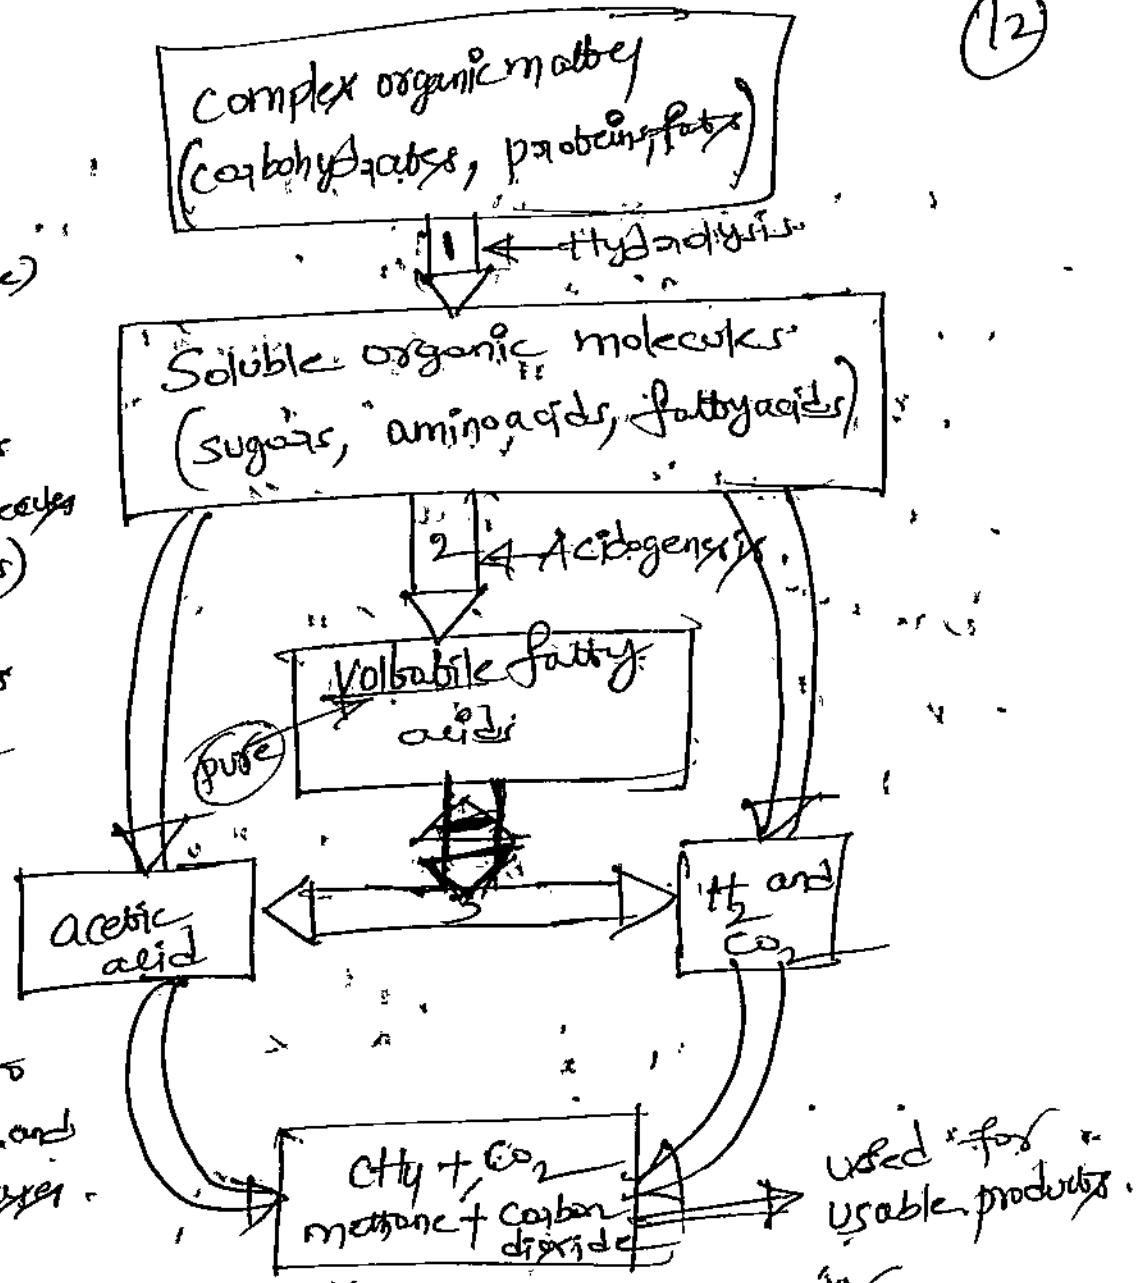 12
Complex organic matter
(carbohydrates, proteins, fats)
1 Hydrolysis
Soluble organic molecules
(sugars, aminoacids, fattyacids)
2 Acidogensis
Volbatile fatty
acids
pure
3
acetic
acid
H2 and
CO2
and
CH4 + CO2
methane + carbon
dioxide
used for
usable products.